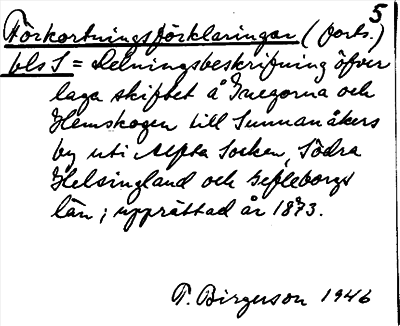 5
Förkortningsförklaringar (forts.)
bls S = Delningsbeskrifning öfver
laga skiftet å Inegorna och
Hemskogen till Sunnanåkers
by uti Alfta Socken, Södra
Helsingland och Gefleborgs
län; upprättad år 1873.
P. Birgerson 1946